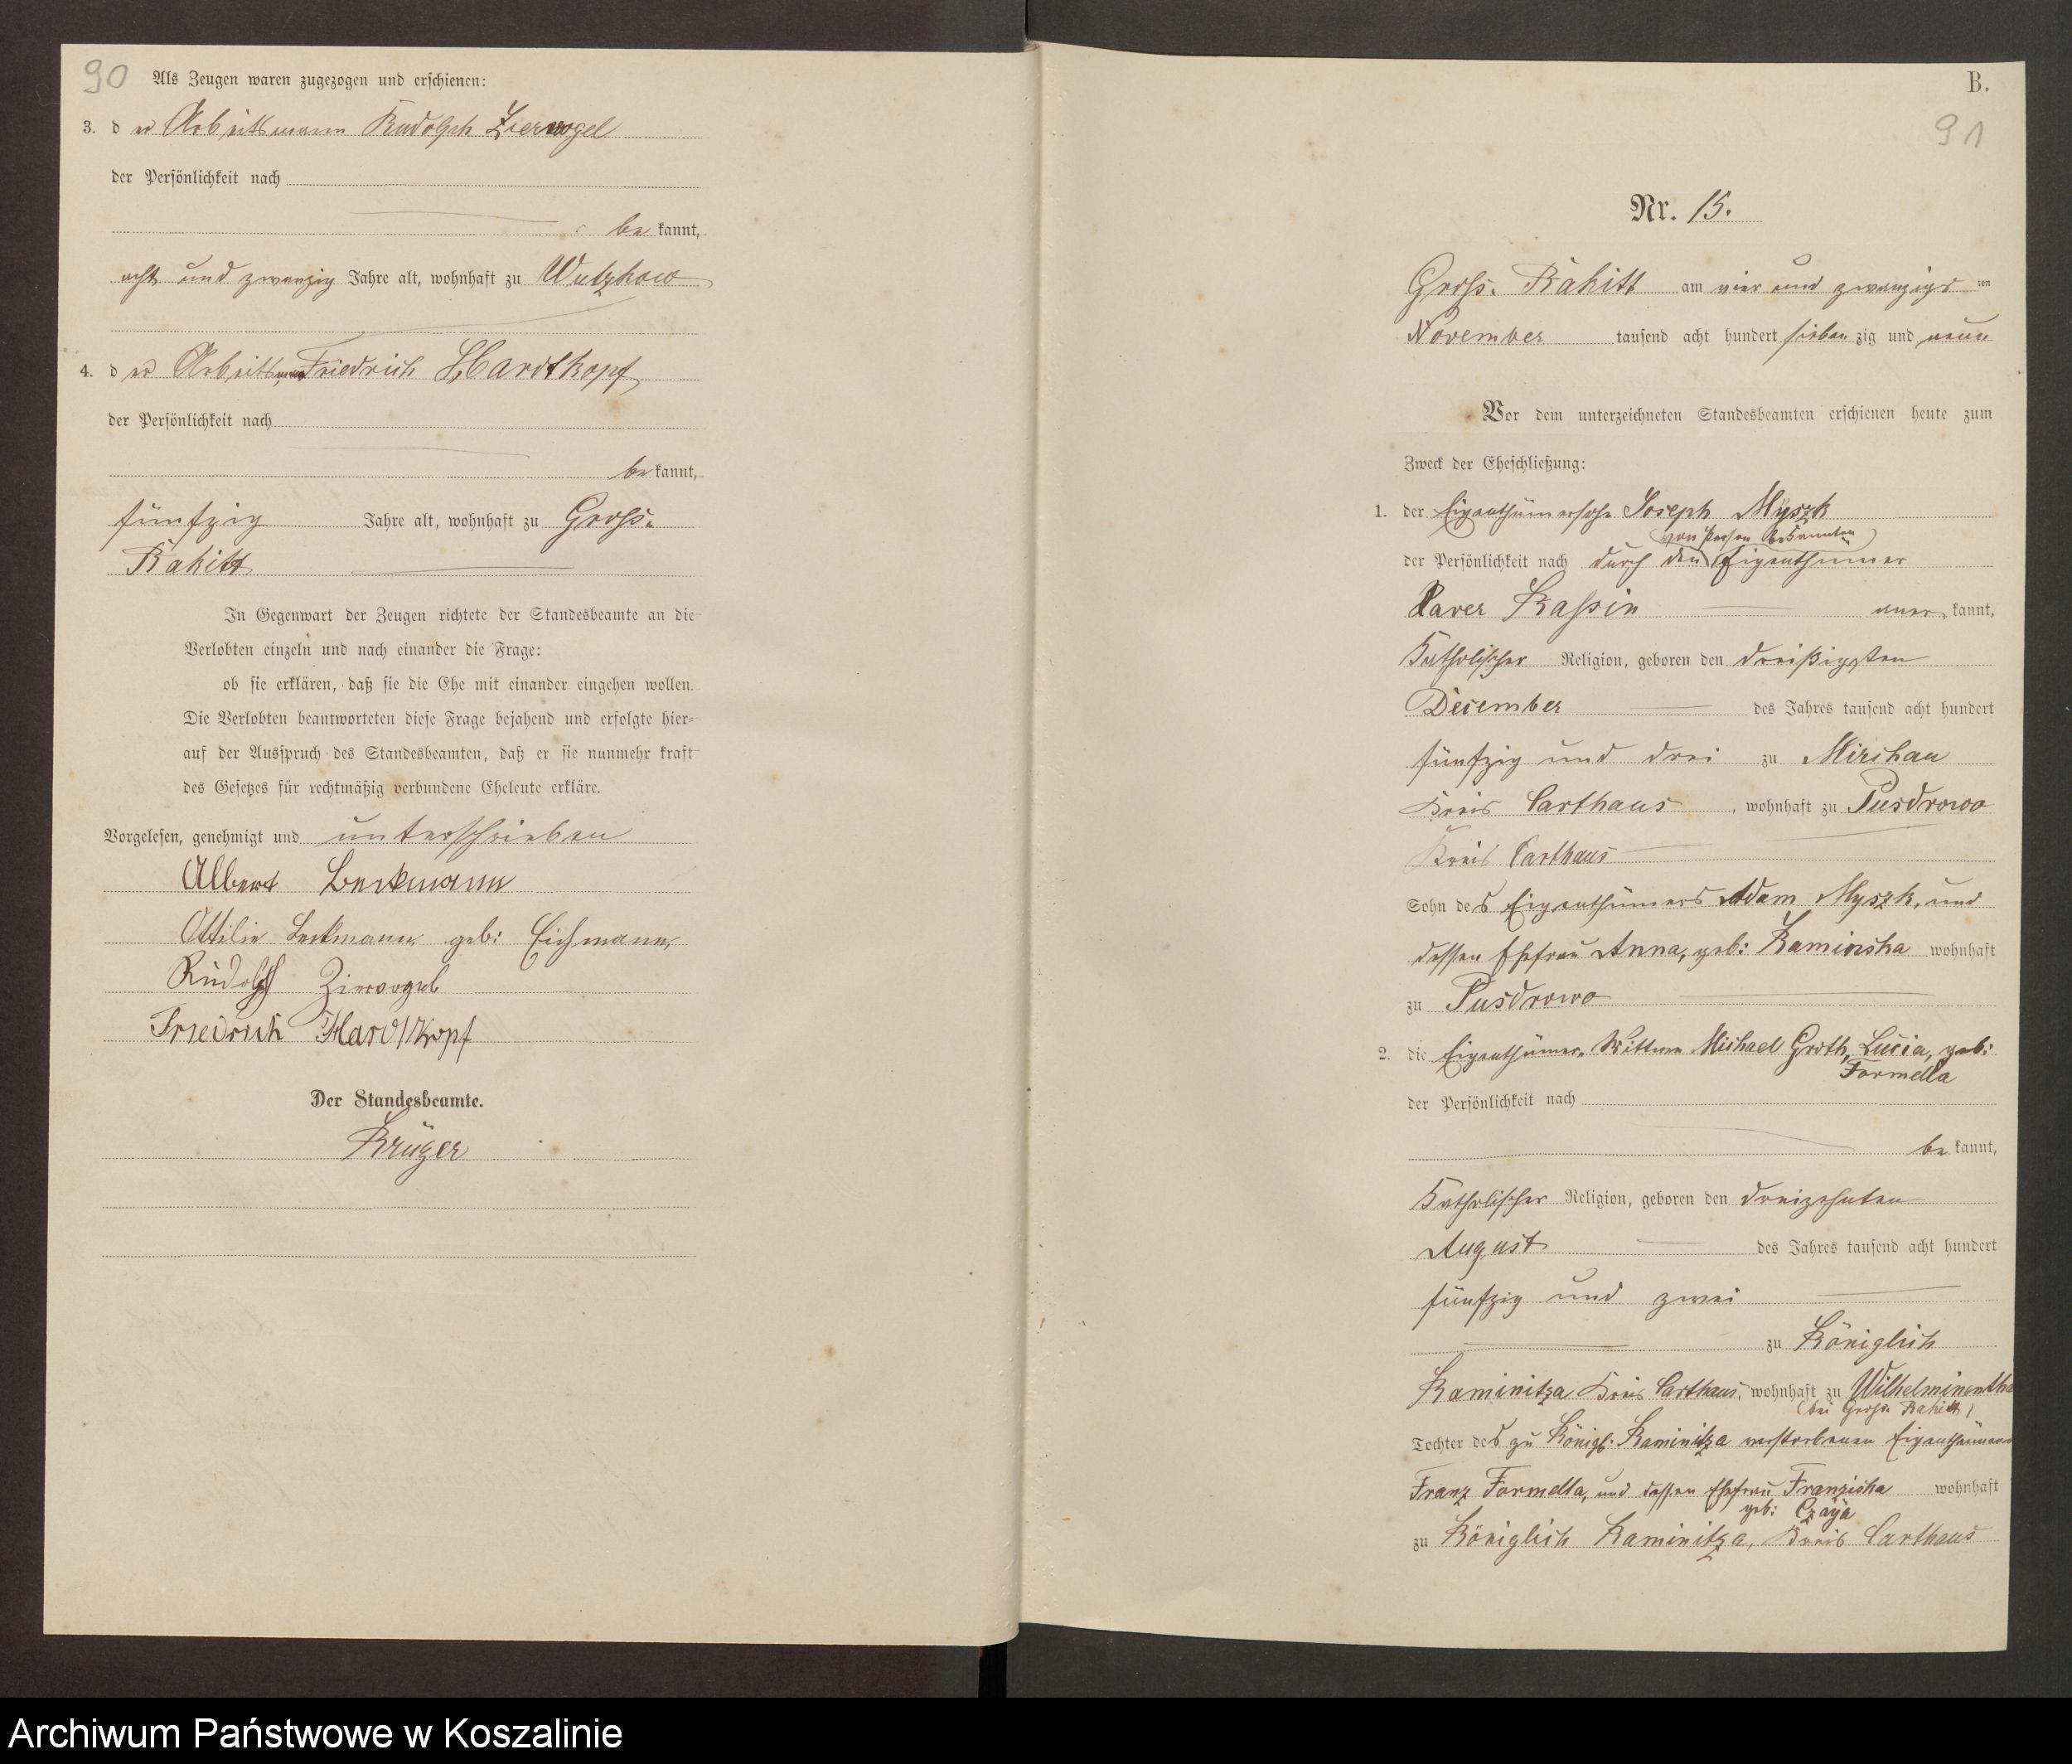 90
Als Zeugen waren zugezogen und erschienen:
3. d er Arbeitsmann Rudolph Ziervogel
der Persönlichkeit nach
be kannt,
acht und zwanzig Jahre alt, wohnhaft zu Wutzkow
4. d er Arbeitsmann Friedrich Hardtkopf
der Persönlichkeit nach
be kannt,
fünfzig Jahre alt, wohnhaft zu Gross-
Rakitt
In Gegenwart der Zeugen richtete der Standesbeamte an die
Verlobten einzeln und nach einander die Frage:
ob sie erklären, daß sie die Ehe mit einander eingehen wollen.
Die Verlobten beantworteten diese Frage bejahend und erfolgte hier-
auf der Ausspruch des Standesbeamten, daß er sie nunmehr kraft
des Gesetzes für rechtmäßig verbundene Eheleute erkläre.
Vorgelesen, genehmigt und unterschrieben
Albert Beckmann
Ottilie Beckmann geb: Eichmann
Rudolph Ziervogel
Friedrich Hardtkopf
Der Standesbeamte.
Krüger
B.
91
Nr. 15.
Gross-Rakitt am vier und zwanzigs ten
November tausend acht hundert sieben zig und neun
Vor dem unterzeichneten Standesbeamten erschienen heute zum
Zweck der Eheschließung:
1. der Eigenthümersohn Joseph Myszk
(von Person bekannten)
der Persönlichkeit nach durch den Eigenthümer
Xaver Kassin aner kannt,
Katholischer Religion, geboren den dreißigsten
December des Jahres tausend acht hundert
fünfzig und drei zu Mirchau
Kreis Carthaus, wohnhaft zu Pusdrowo
Kreis Carthaus
Sohn des Eigenthümers Adam Myszk, und
dessen Ehefrau Anna, geb: Kaminska wohnhaft
zu Pusdrowo
2. die Eigenthümer-Wittwe Michael Groth, Lucia, geb:
Formella
der Persönlichkeit nach
be kannt,
Katholischer Religion, geboren den dreizehnten
August des Jahres tausend acht hundert
fünfzig und zwei
zu Königlich
Kaminitza Kreis Carthaus, wohnhaft zu Wilhelminentha
(bei Gross-Rakitt)
Tochter des zu Königl. Kaminitza verstorbenen Eigenthümers
Franz Formella, und dessen Ehefrau Franziska wohnhaft
geb: Czaya
zu Königlich Kaminitza, Kreis Carthaus
Archiwum Państwowe w Koszalinie